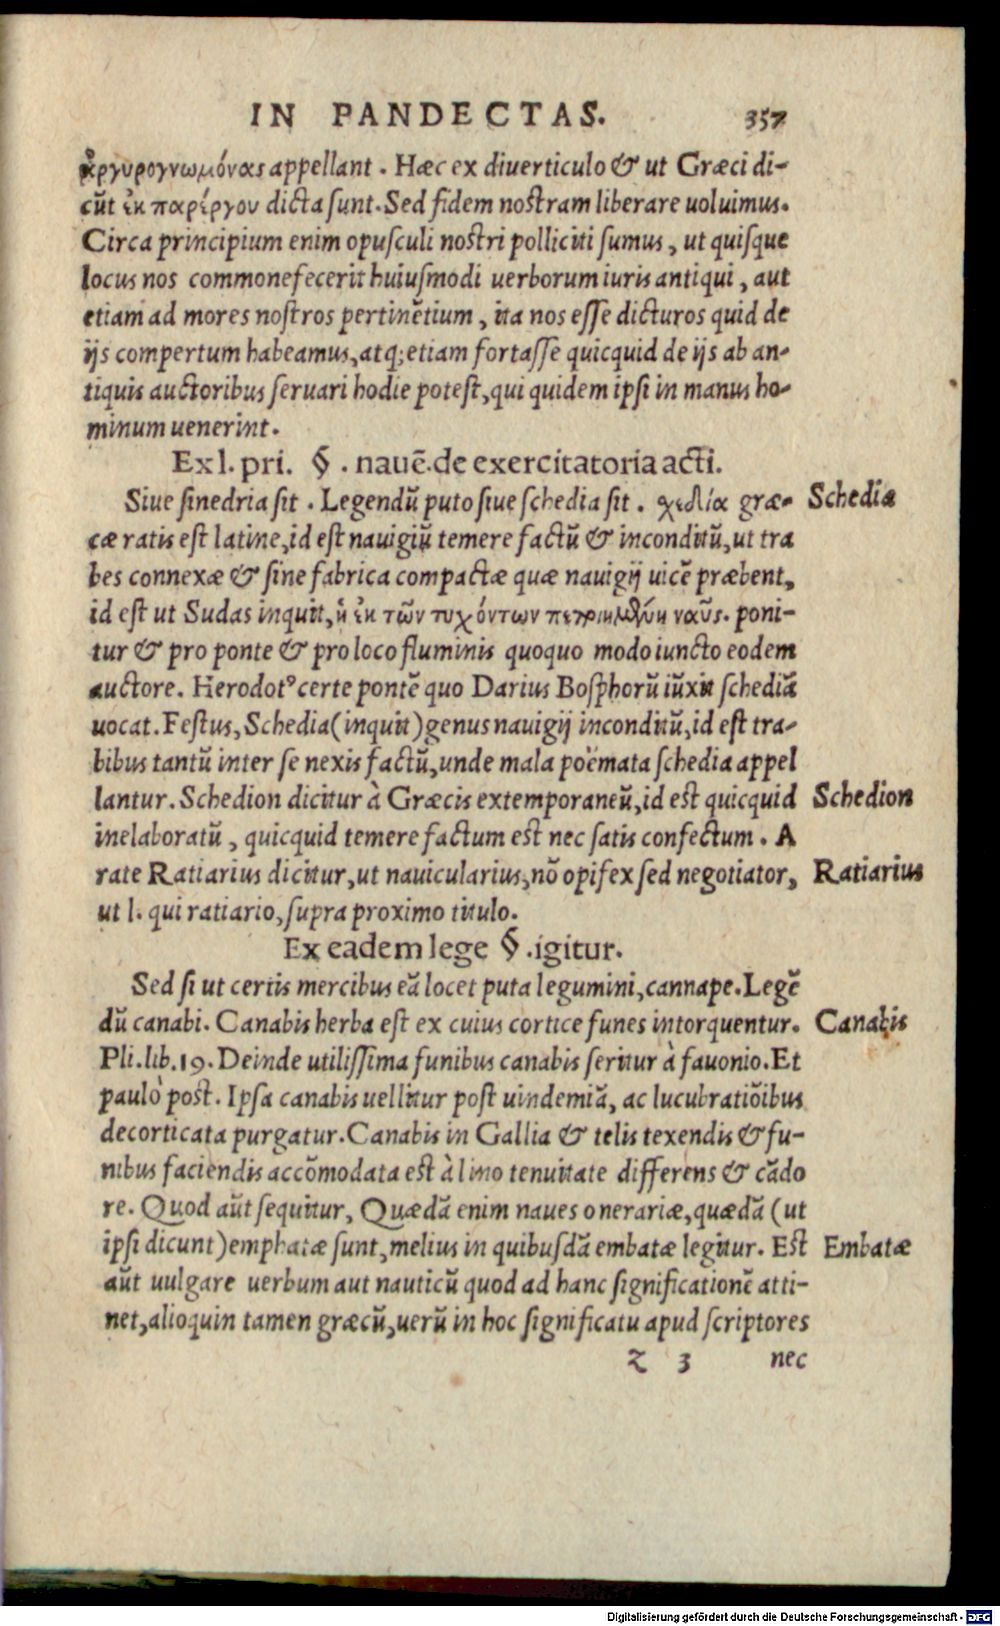 IN PANDECTAS. 357
ἀργυρογνωμόνας appellant. Hæc ex diverticulo & ut Græci di-
cūt ἐκ παρέργου dicta sunt. Sed fidem nostram liberare uoluimus.
Circa principium enim opusculi nostri polliciti sumus, ut quisque
locus nos commonefecerit huiusmodi uerborum iuris antiqui, aut
etiam ad mores nostros pertinētium, ita nos esse dicturos quid de
ijs compertum habeamus, atq; etiam fortasse quicquid de ijs ab an-
tiquis auctoribus seruari hodie potest, qui quidem ipsi in manus ho-
minum uenerint.
Ex l. pri. § . nauē. de exercitatoria acti.
Siue sinedria sit. Legendū puto siue schedia sit. χεδία græ- Schedia
cæ ratis est latine, id est nauigiū temere factū & inconditū, ut tra
bes connexæ & sine fabrica compactæ quæ nauigij uicē præbent,
id est ut Sudas inquit, ἡ ἐκ τῶν τυχόντων ναῦς. poni-
tur & pro ponte & pro loco fluminis quoquo modo iuncto eodem
auctore. Herodotꝰ certe pontē quo Darius Bosphorū iūxit schediā
uocat. Festus, Schedia (inquit) genus nauigij inconditū, id est tra-
bibus tantū inter se nexis factū, unde mala poëmata schedia appel
lantur. Schedion dicitur à Græcis extemporaneū, id est quicquid Schedion
inelaboratū, quicquid temere factum est nec satis confectum. A
rate Ratiarius dicitur, ut nauicularius, nō opifex sed negotiator, Ratiarius
ut l. qui ratiario, supra proximo titulo.
Ex eadem lege § . igitur.
Sed si ut certis mercibus eā locet puta legumini, cannape. Legē
dū canabi. Canabis herba est ex cuius cortice funes intorquentur. Canabis
Pli. lib. 19. Deinde utilissima funibus canabis seritur à fauonio. Et
paulò pòst. Ipsa canabis uellitur post uindemiā, ac lucubratiōibus
decorticata purgatur. Canabis in Gallia & telis texendis & fu-
nibus faciendis accōmodata est à lino tenuitate differens & cādo
re. Quod aūt sequitur, Quædā enim naues onerariæ, quædā (ut
ipsi dicunt) emphatæ sunt, melius in quibusdā embatæ legitur. Est Embatæ
aūt uulgare uerbum aut nauticū quod ad hanc significationē atti-
net, alioquin tamen græcū, uerū in hoc significatu apud scriptores
Z 3 nec
Digitalisierung gefördert durch die Deutsche Forschungsgemeinschaft - DFG